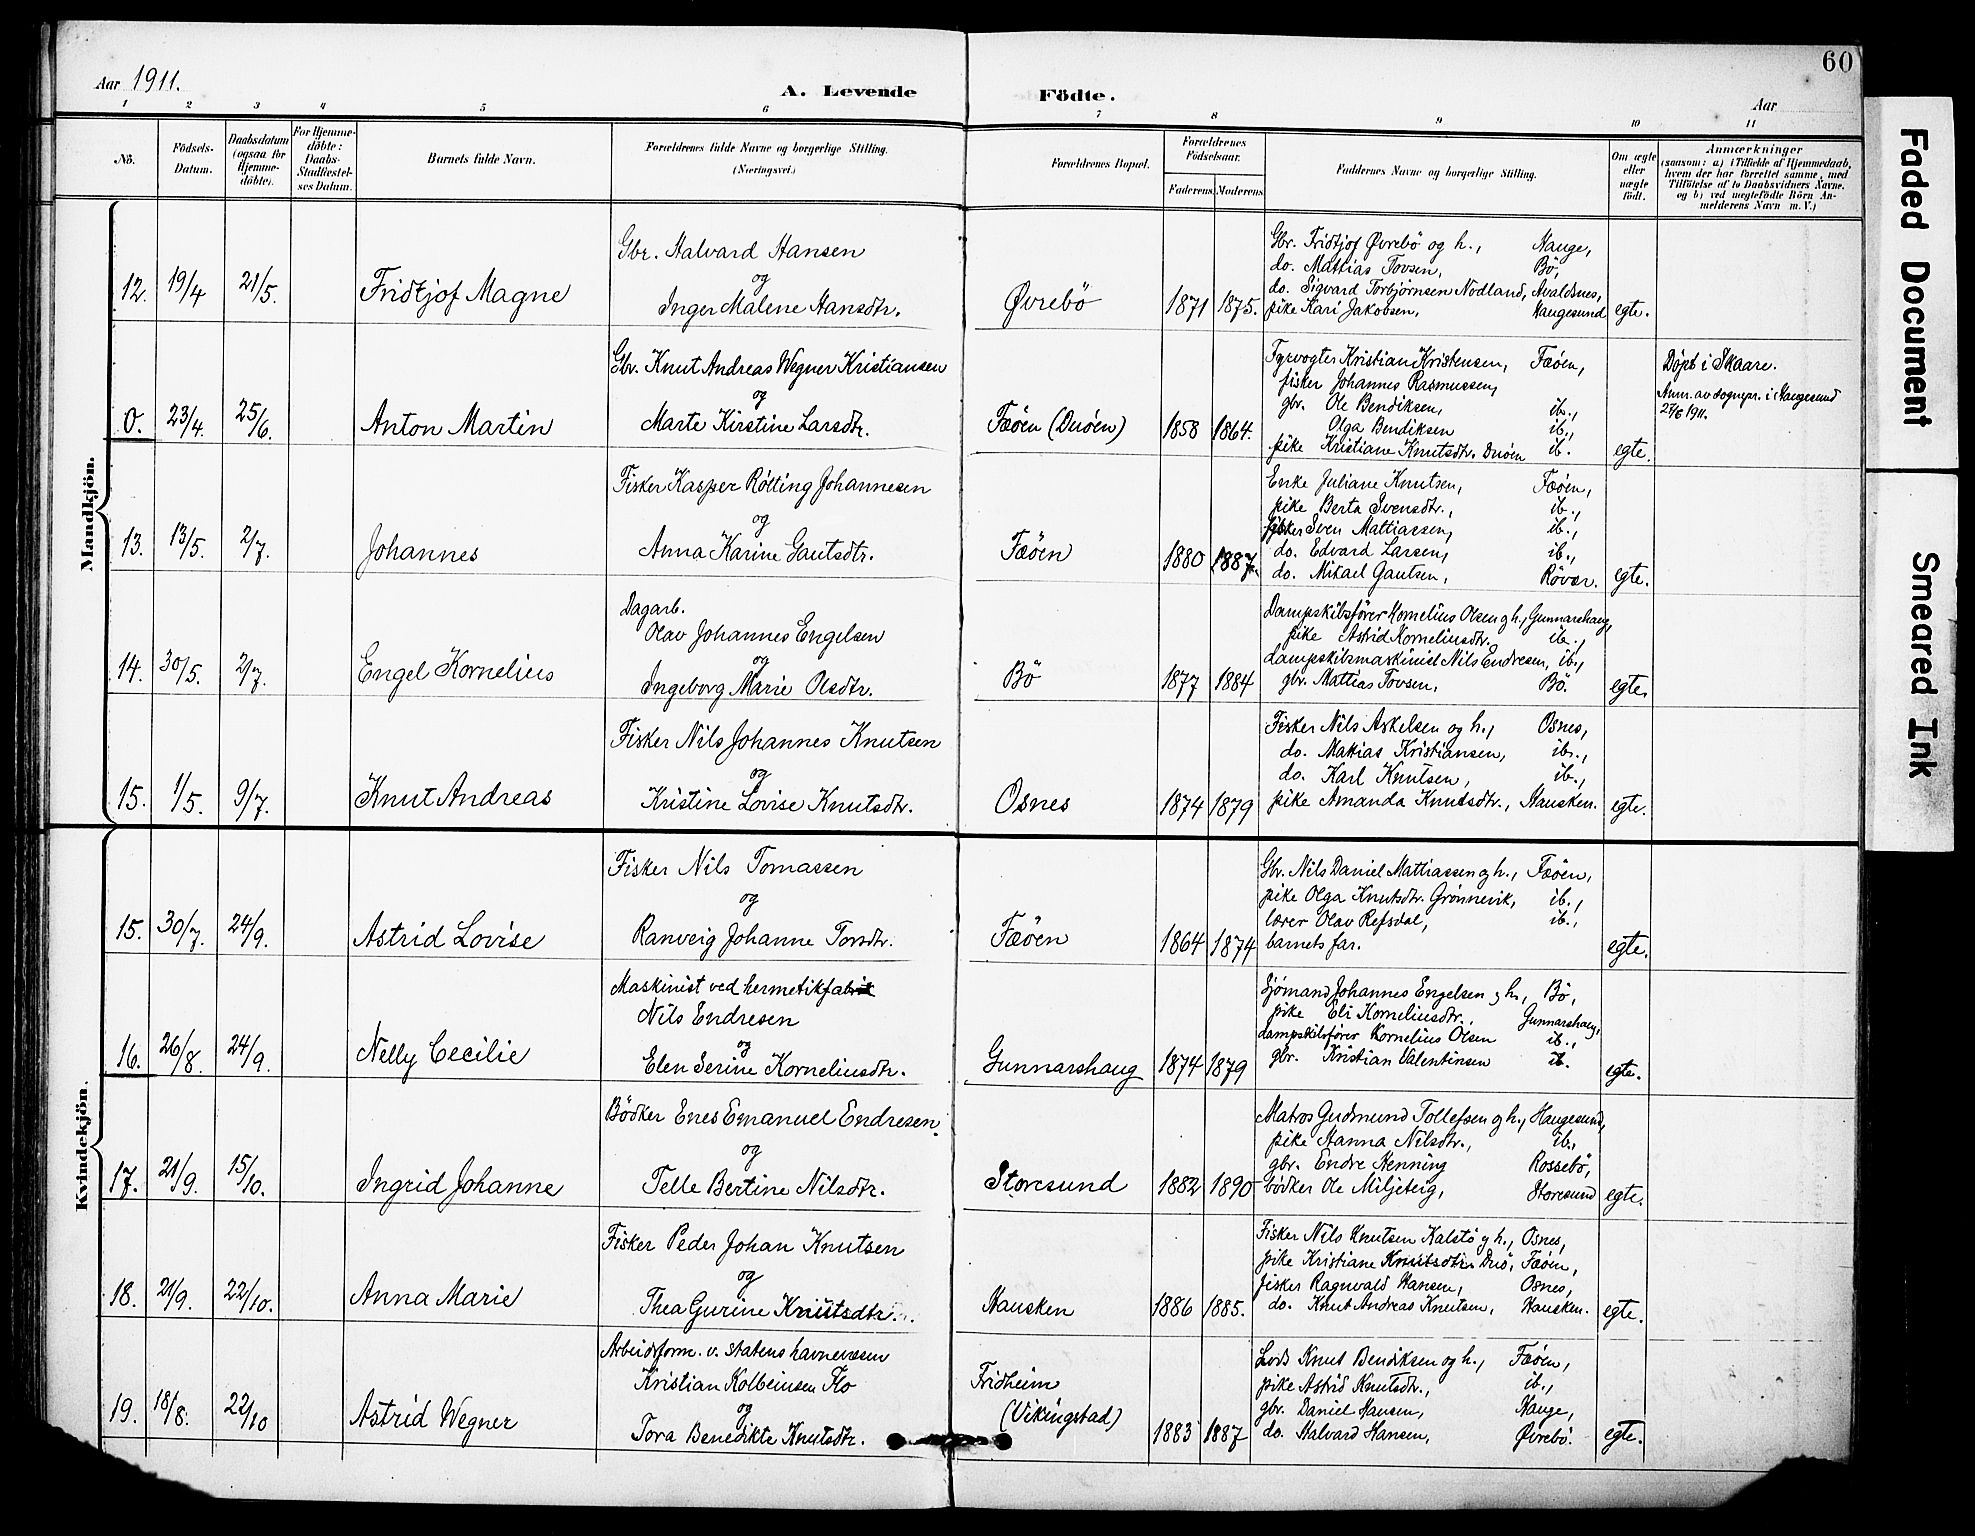 60
Aar 1911.
A. Levende Födte.
Aar
1 2 3 4 5 6 7 8 9 10 11
Nō.
Födsels-Datum.
Daabsdatum (ogsaa for Hjemme-döbte).
For Hjemme-döbte: Daabs-Stadfæstel-ses Datum.
Barnets fulde Navn.
Forældrenes fulde Navne og borgerlige Stilling. (Næringsvei.)
Forældrenes Bopæl.
Forældrenes Födselsaar.
Faderens. Moderens.
Faddernes Navne og borgerlige Stilling.
Om ægte eller uægte födt.
Anmærkninger
(saasom: a) i Tilfælde af Hjemmedaab, hvem der har forrettet samme, med Tilföielse af to Daabsvidners Navne, og b) ved uægtefödte Börn An-melderens Navn m. V.)
Mandkjön.
12. 19/4 21/5. Fridtjof Magne
Gbr. Halvard Hansen
og
Inger Malene Hansdtr.
Øvrebö 1871 1875.
Gbr. Fridtjof Øvrebö og h., Hauge,
do. Mattias Tovsen, Bö,
do. Sigvard Torbjörnsen Nodland, Avaldsnes,
pike Kari Jakobsen, Haugesund
egte.
0. 23/4. 25/6. Anton Martin
Gbr. Knut Andreas Wegner Kristiansen
og
Marte Kirstine Larsdtr.
Fæöen (Duöen) 1858 1864.
Fyrvogter Kristian Kristensen, Fæöen,
fisker Johannes Rasmussen,
gbr. Ole Bendiksen, ib.,
Olga Bendiksen ib.,
pike Kristiane Knutsdtr. Duöen ib.
egte.
Döpt i Skaare.
Anm. av sognepr. i Haugesund
27/6 1911.
13. 13/5. 2/7. Johannes
Fisker Kasper Rötting Johannesen
og
Anna Karine Gautsdtr.
Fæöen 1880 1887.
Enke Juliane Knutsen, Fæöen,
pike Berta Svensdtr., ib.,
fisker Sven Mattiassen, ib.,
do. Edvard Larsen, ib.,
do. Mikael Gautsen, Rövær.
egte.
14. 30/5. 2/7. Engel Kornelius
Dagarb.
Olav Johannes Engelsen
og
Ingeborg Marie Olsdtr.
Bö 1877 1884
Dampskibsförer Kornelius Olsen og h., Gunnarshaug,
pike Astrid Korneliusdtr. ib.,
dampskibsmaskinist Nils Endresen, ib.,
gbr. Mattias Tovsen, Bö.
egte.
15. 1/5. 9/7. Knut Andreas
Fisker Nils Johannes Knutsen
og
Kristine Lovise Knutsdtr.
Osnes 1874 1879
Fisker Nils Askelsen og h., Osnes,
do. Mattias Kristiansen, ib.,
do. Karl Knutsen, ib.,
pike Amanda Knutsdtr., Hausken.
egte.
Kvindekjön.
15. 30/7. 24/9. Astrid Lovise
Fisker Nils Tomassen
og
Ranveig Johanne Torsdtr.
Fæöen 1864 1874
Gbr. Nils Daniel Mattiassen og h., Fæöen,
pike Olga Knutsdtr. Grönnevik, ib.,
lærer Olav Refsdal, ib.,
barnets far.
egte.
16. 26/8. 24/9. Nelly Cecilie
Maskinist ved hermetikfabrik
Nils Endresen
og
Elen Serine Korneliusdtr.
Gunnarshaug 1874 1879
Sjömand Johannes Engelsen og h., Bö,
pike Eli Korneliusdtr., Gunnarshaug,
dampskibsförer Kornelius Olsen ib.,
gbr. Kristian Valentinsen ib.
egte.
17. 21/9. 15/10. Ingrid Johanne
Bödker Enes Emanuel Endresen
og
Telle Bertine Nilsdtr.
Storesund 1882 1890
Matros Gudmund Tollefsen og h., Haugesund,
pike Hanna Nilsdtr., ib.,
gbr. Endre Henning Rossebö,
bödker Ole Miljeteig, Storesund
egte.
18. 21/9. 22/10. Anna Marie
Fisker Peder Johan Knutsen
og
Thea Gurine Knutsdtr.
Hausken 1886 1885.
Fisker Nils Knutsen Kalstö og h., Osnes,
pike Kristiane Knutsdtr. Duö, Fæöen,
fisker Ragnvald Hansen, Osnes,
do. Knut Andreas Knutsen, Hausken.
egte.
19. 18/8. 22/10 Astrid Wegner
Arbeidsform. v. statens havnevæsen
Kristian Kolbeinsen Flo
og
Tora Benedikte Knutsdtr.
Fridheim
(Vikingstad) 1883 1887
Lods Knut Bendiksen og h., Fæöen,
pike Astrid Knutsdtr., ib.,
gbr. Daniel Hansen, Hauge,
do. Halvard Hansen, Øvrebö.
egte.
Faded Document
Smeared Ink